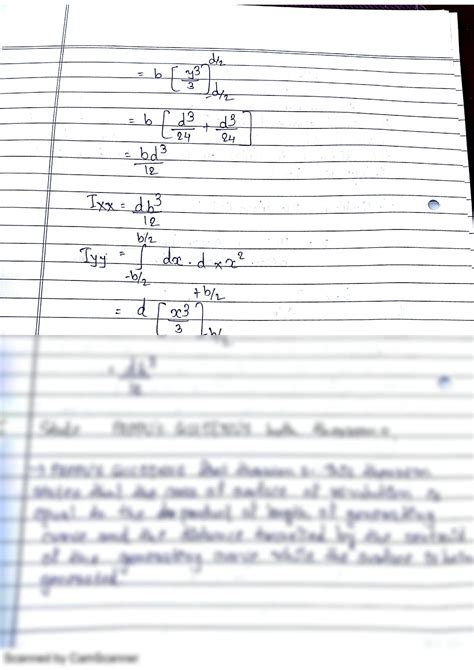 = b [y³/3]_{-d/2}^{d/2}
= b [d³/24 + d³/24]
= bd³/12
Ixx = db³/12
Iyy = ∫_{-b/2}^{b/2} dx · d × x²
= d [x³/3]_{-b/}^{+b/2}
State PAPPU'S GULDINUS both theorems.
states that the area of surface of revolution is
equal to the product of length of generating
curve and the distance travelled by the centroid
of the generating curve while the surface is being
generated"
Scanned by CamScanner